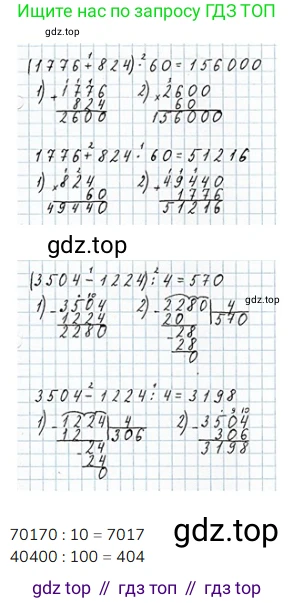 Ищите нас по запросу ГДЗ ТОП
(1776+824)·60=156000
1) +1776
824
2600
2) ×2600
60
156000
1776+824·60=51216
1) ×824
60
49440
2) +49440
1776
51216
gdz.top
(3504-1224):4=570
1) -3504
1224
2280
2) -2280 4
20 570
-28
28
0
3504-1224:4=3198
1) -1224 4
12 306
-24
24
0
2) -3504
306
3198
70170 : 10 = 7017
40400 : 100 = 404
gdz.top
gdz.top // гдз.топ // gdz.top